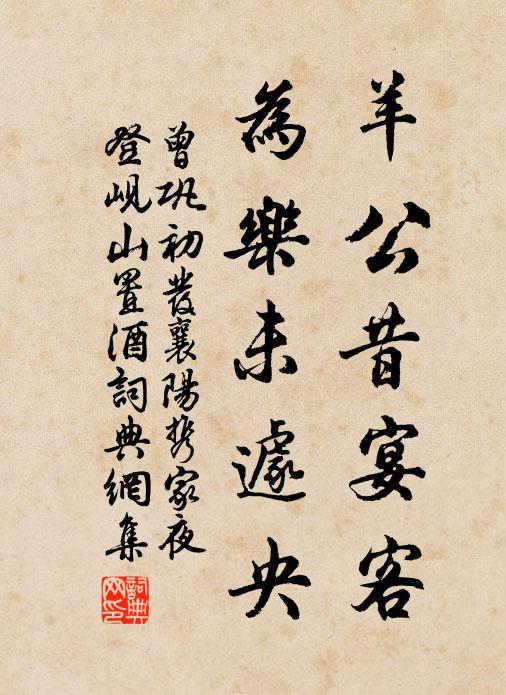 羊公昔宴客
為樂未遽央
曾巩初發襄陽携家夜
登峴山置酒詞典網集
詞典
网印